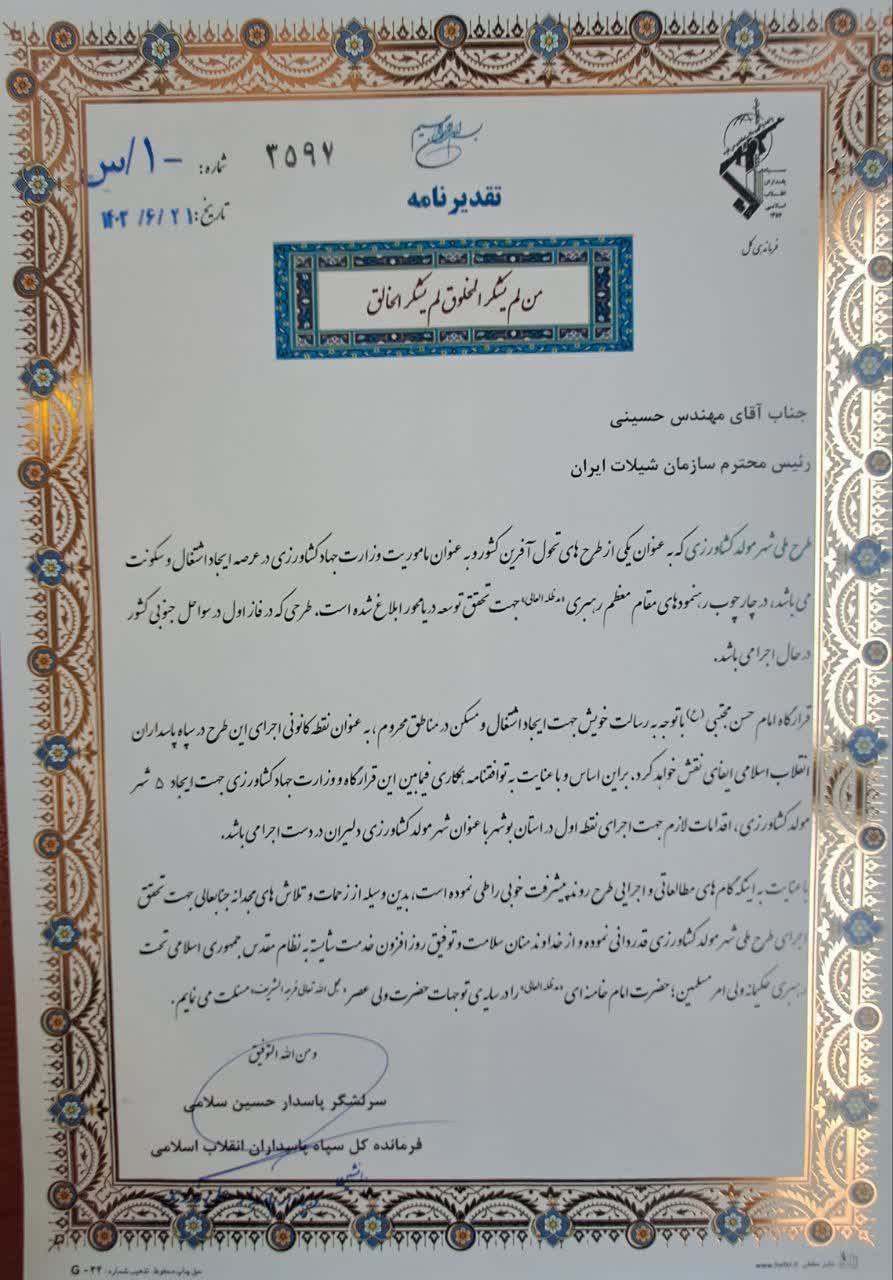 بسم الله الرحمن الرحیم
تقدیرنامه
سپاه
پاسداران
انقلاب
اسلامی
فرماندهی کل
شماره: ۳۵۹۷ -۱/س
تاریخ: ۱۴۰۲/۶/۲۱
من لم یشکر المخلوق لم یشکر الخالق
جناب آقای مهندس حسینی
رئیس محترم سازمان شیلات ایران
طرح ملی شهر مولد کشاورزی که به عنوان یکی از طرح های تحول آفرین کشور و به عنوان ماموریت وزارت جهاد کشاورزی در عرصه ایجاد اشتغال و سکونت
می باشد، در چارچوب رهنمودهای مقام معظم رهبری «مدظله العالی» جهت تحقق توسعه دریامحور ابلاغ شده است. طرحی که در فاز اول در سواحل جنوبی کشور
در حال اجرا می باشد.
قرارگاه امام حسن مجتبی (ع) با توجه به رسالت خویش جهت ایجاد اشتغال و مسکن در مناطق محروم، به عنوان نقطه کانونی اجرای این طرح در سپاه پاسداران
انقلاب اسلامی ایفای نقش خواهد کرد. براین اساس و با عنایت به توافقنامه همکاری فیمابین این قرارگاه و وزارت جهاد کشاورزی جهت ایجاد ۵ شهر
مولد کشاورزی، اقدامات لازم جهت اجرای نقطه اول در استان بوشهر با عنوان شهر مولد کشاورزی دلیران در دست اجرا می باشد.
با عنایت به اینکه گام های مطالعاتی و اجرایی طرح روند پیشرفت خوبی را طی نموده است، بدین وسیله از زحمات و تلاش های مجدانه جنابعالی جهت تحقق
اجرای طرح ملی شهر مولد کشاورزی قدردانی نموده و از خداوند منان سلامت و توفیق روزافزون خدمت شایسته به نظام مقدس جمهوری اسلامی تحت
رهبری حکیمانه ولی امر مسلمین؛ حضرت امام خامنه ای «مدظله العالی» را در سایه ی توجهات حضرت ولی عصر «عجل الله تعالی فرجه الشریف» مسئلت می نمایم.
و من الله التوفیق
سرلشگر پاسدار حسین سلامی
فرمانده کل سپاه پاسداران انقلاب اسلامی
حق چاپ محفوظ. تذهیب شماره: G - ۳۲